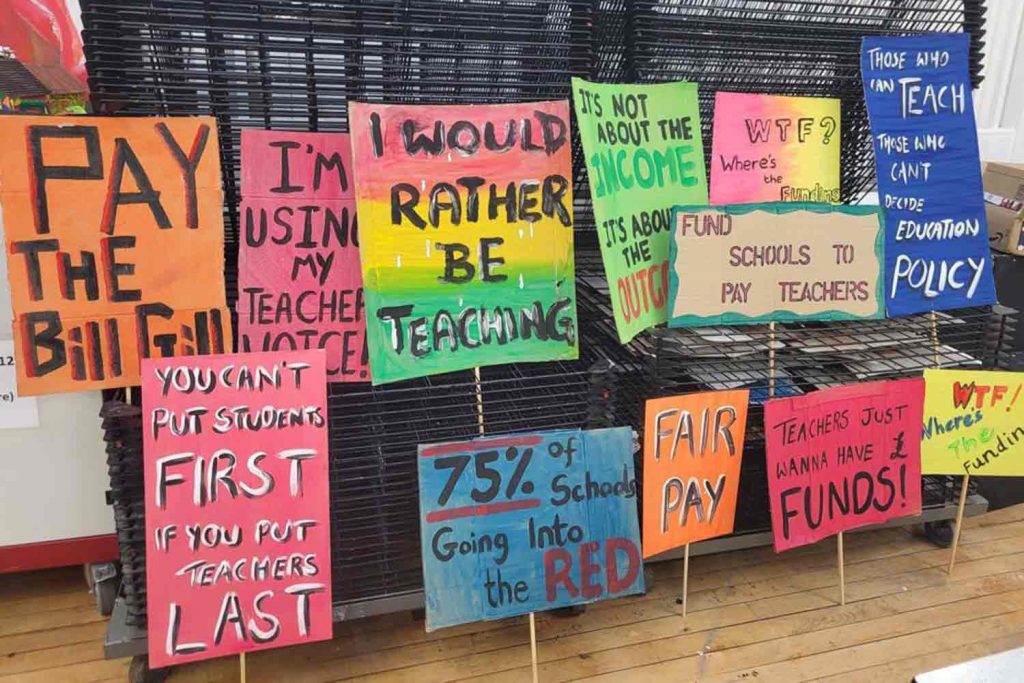 PAY
THE
Bill Gill
I'M
USING
MY
TEACHER
VOICE!
I WOULD
RATHER
BE
TEACHING
IT'S NOT
ABOUT THE
INCOME
IT'S ABOUT
THE
WTF?
Where's
the
Funding
FUND
SCHOOLS TO
PAY TEACHERS
THOSE WHO
CAN TEACH
THOSE WHO
CAN'T
DECIDE
EDUCATION
POLICY
YOU CAN'T
PUT STUDENTS
FIRST
IF YOU PUT
TEACHERS
LAST
75% of
Schools
Going Into
the RED
FAIR
PAY
TEACHERS JUST
WANNA HAVE £
FUNDS!
WTF!
Where's
The
Funding
12
re)